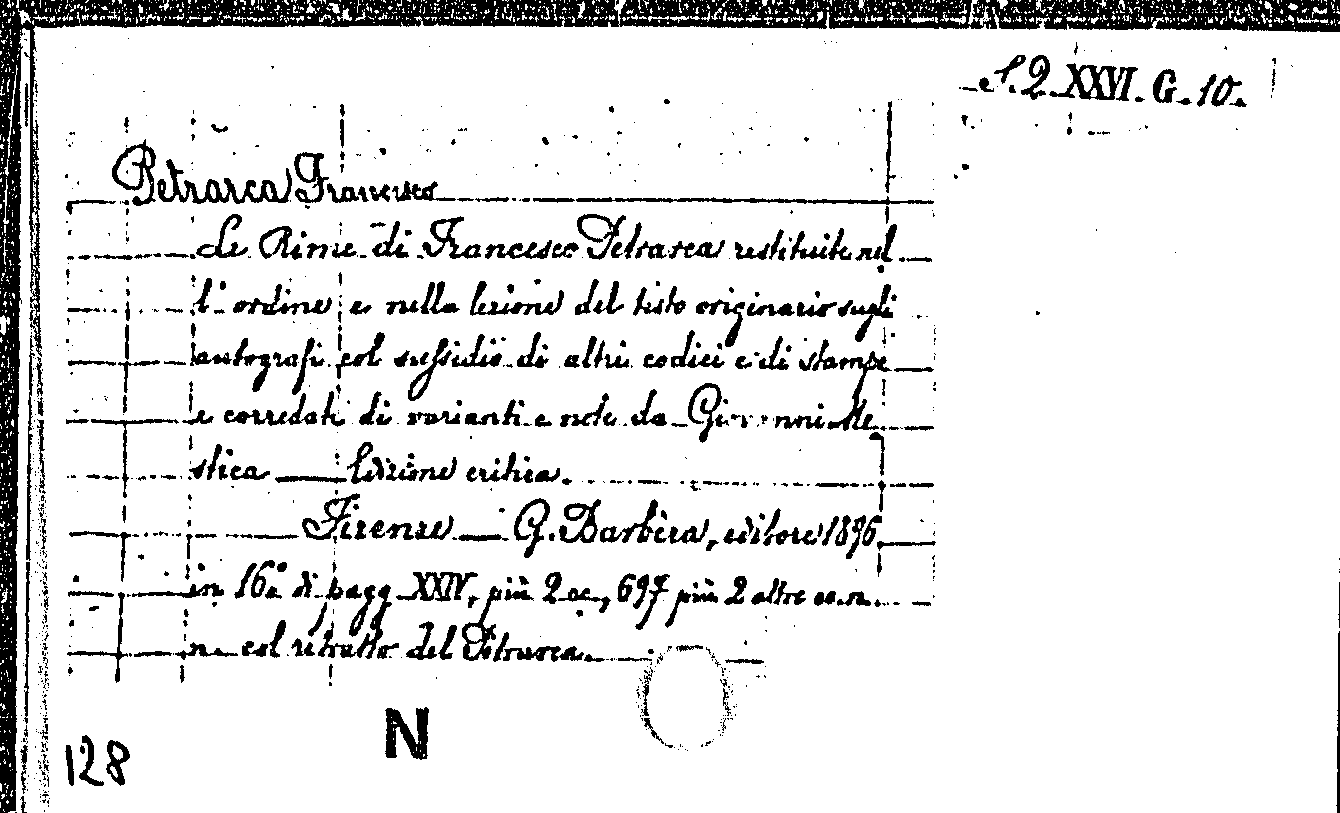 S. Q. XXVI. G. 10.
Petrarca Francesco
Le Rime di Francesco Petrarca restituite nel
l'ordine e nella lezione del testo originario sugli
autografi col sussidio di altri codici e di stampe
e corredati di varianti e note da Giovanni Me
stica — Edizione critica.
Firenze — G. Barbèra, editore 1896
in 16.º di pagg. XXIV, più 2 cc., 697 più 2 altre cc. n.
n. col ritratto del Petrarca.
N
128